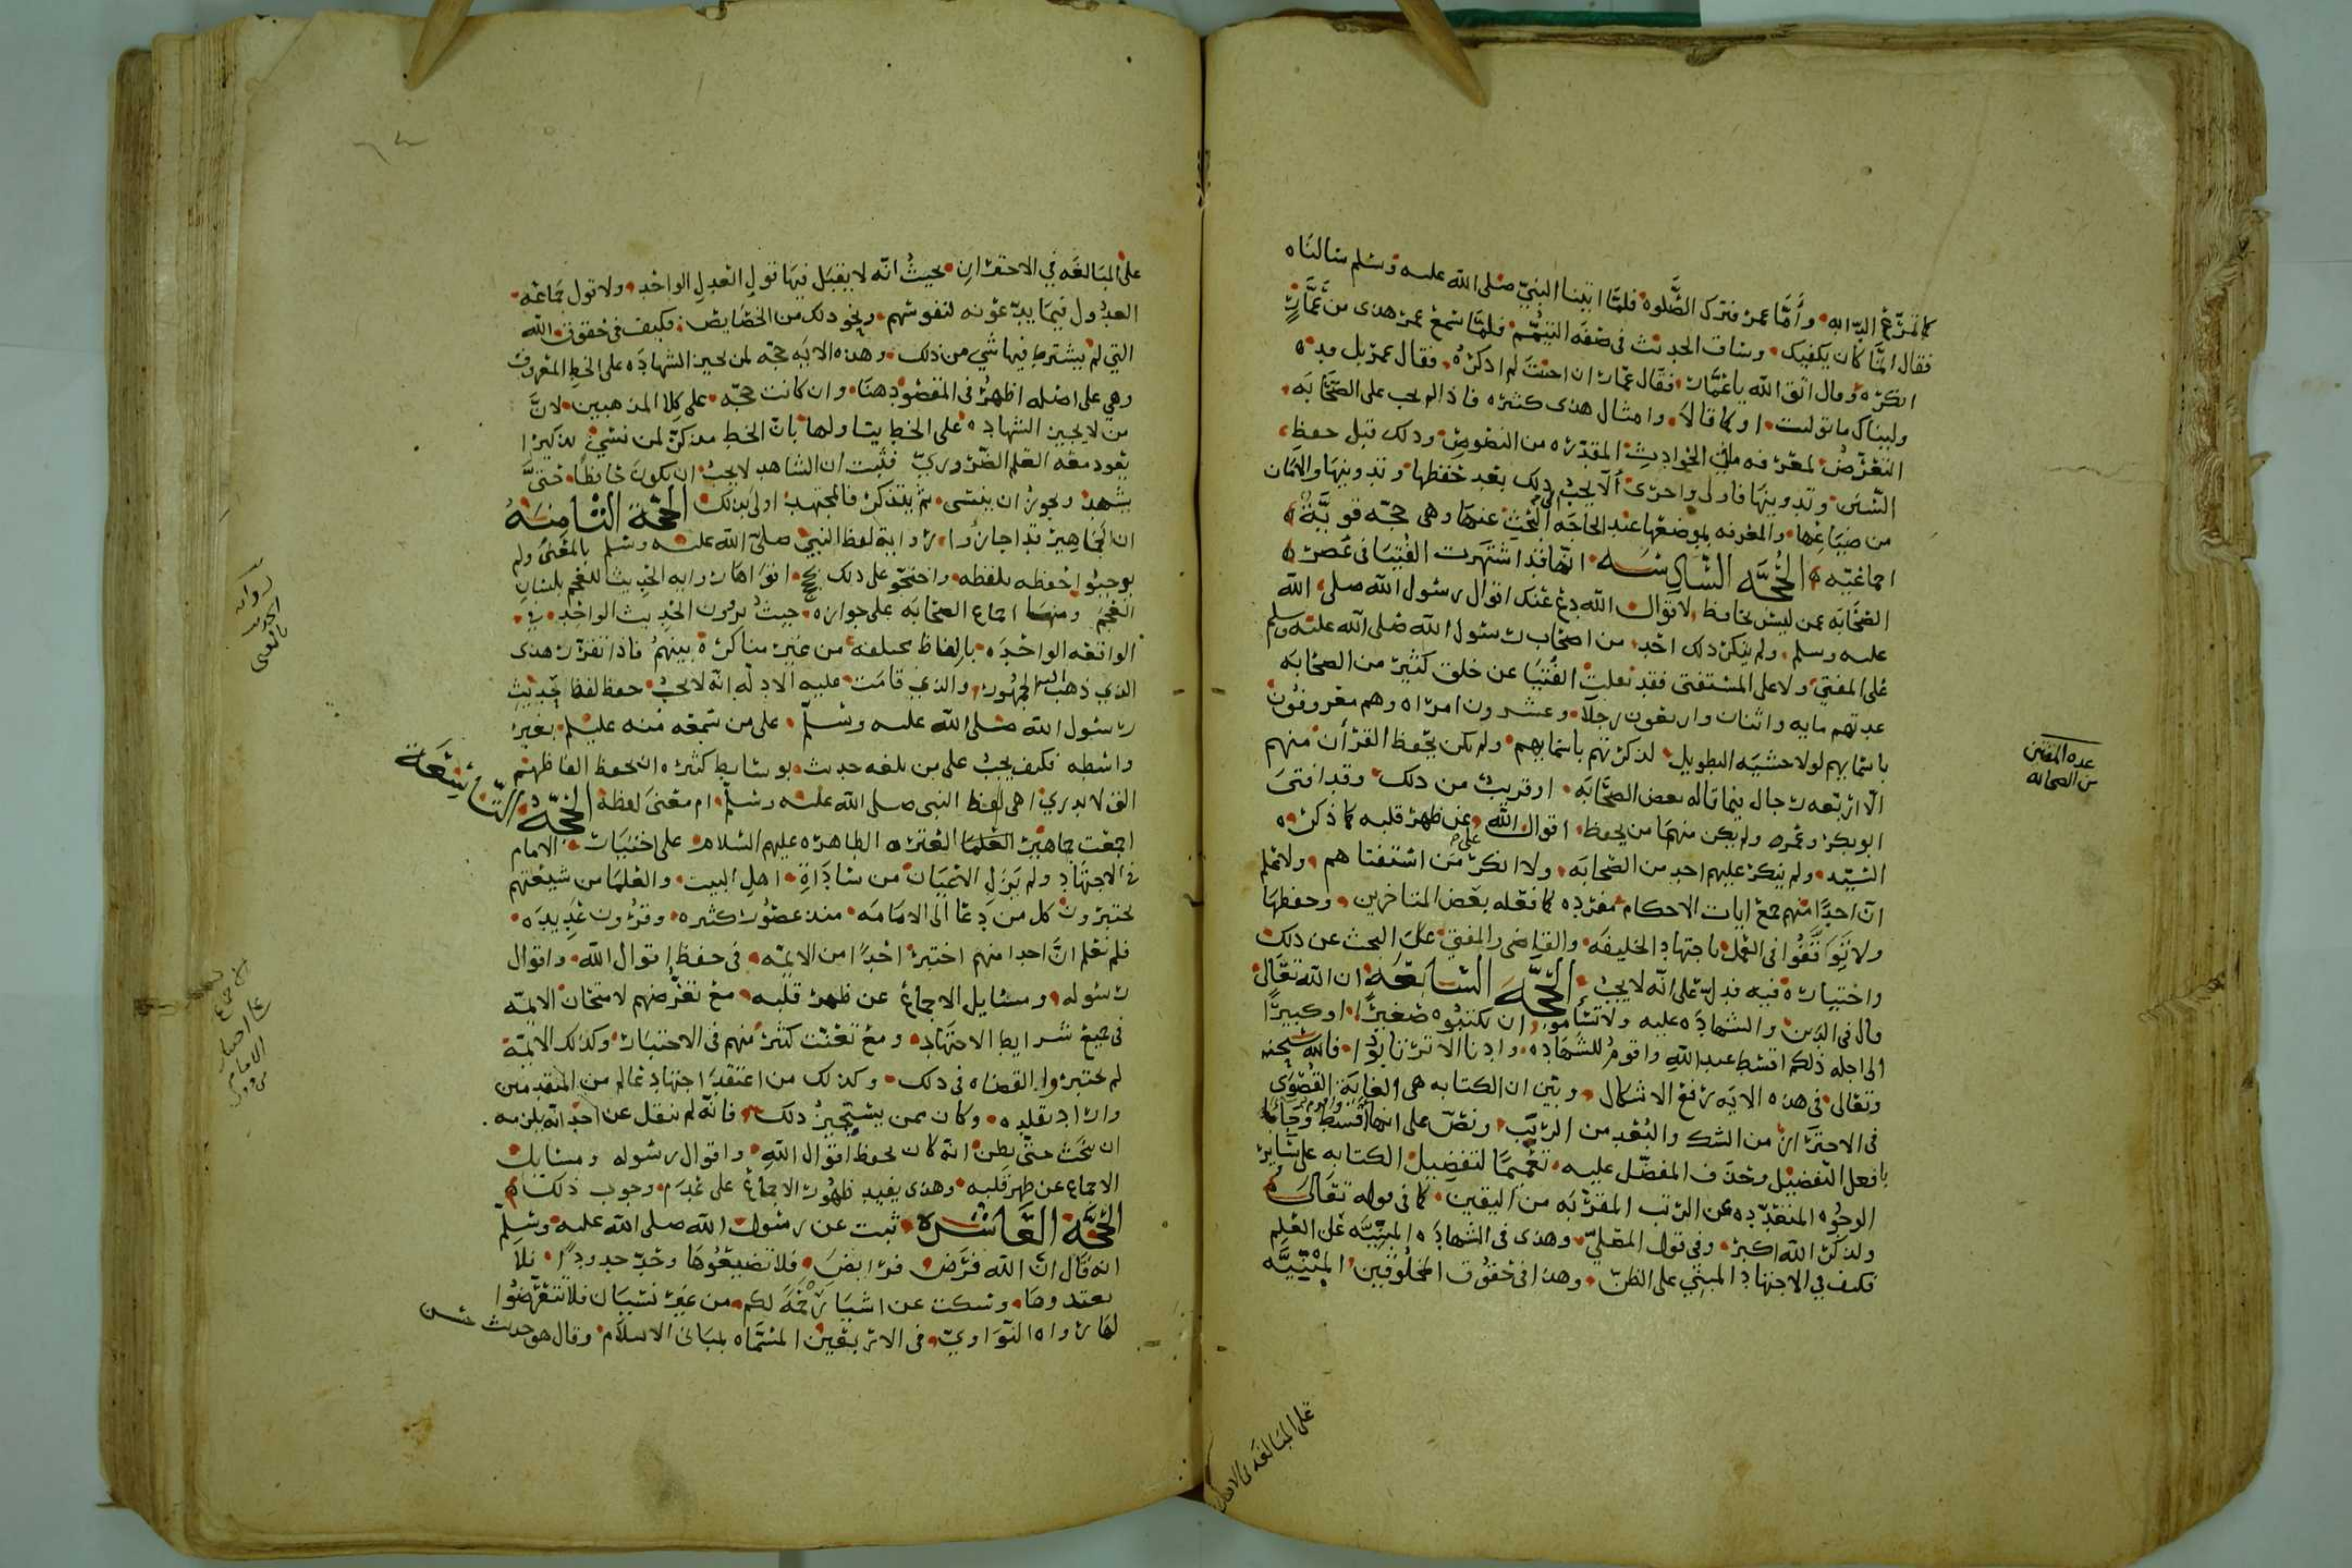 كما تمرّغ الدّابه وأمّا عمر فترك الصّلوه فلمّا اتينا النبيّ صلى الله عليه وسلم سالناه
فقال انمّا كان يكفيك وساق الحديث في صفة التيمّم فلمّا سمع عمر هذى من عمّارٍ
انكره وقال اتق الله يا عمّار فقال عمار ان احببت لم اذكره فقال عمر بل
ولّيناك ما توليت او كما قالا وامثال هذى كثيره فاذا لم يجب على الصّحابه
التعرّض لمعرفه ما في الحوادث المقدّره من النصوص وذلك قبل حفظ
السّنن وتدوينها فاولى واحرى ألّا يجب ذلك بعد حفظها وتدوينها والامان
من ضياعها والمعرفه بموضعها عند الحاجه الى البحث عنها وهي حجّه قويّةٌ
اجماعيّه الحُجَّه السّادِسَه انها قد اشتهرت الفُتيا في عصره
الصّحابَه عمن ليس بحافظ لاقوال الله دع عنك اقوال رسول الله صلى الله
عليه وسلم ولم ينكر ذلك احد من اصحاب رسول الله صلى الله عليه وسلم
على المفتي ولا على المستفتى فقد نقلت الفُتيا عن خلق كثير من الصحابه
عدتهم مايه واثنان واربعون رجلاً وعشرون امراه وهم معروفون
باسمايهم لولا خشيه التطويل لذكرتهم باسمايهم ولم يكن يحفظ القرأن منهم
الّا اربعه رجال فيما قاله بعض الصحّابَه او قريب من ذلك وقد افتى
ابو بكر وعمر ولم يكن منهما من يحفظ اقوال الله على ظهر قلبه كما ذكره
السّيّد ولم ينكر عليهم احد من الصّحابَه ولا انكر على من استفتاهم ولا نعلم
انّ احدًا منهم جمع ايات الاحكام مفرده كما فعله بعض المتاخرين وحفظها
ولا تَوَقَّفُوا في العمل باجتهاد الخليفَه والقاضى والمفتي على البحث عن ذلك
واختياره فيه فدل على انّه لا يجب الحُجَّة السّابِعَه ان الله تعالى
قال في الدّين والشهادَه عليه ولا تسأموا ان تكتبوه صغيرًا او كبيرًا
الى اجله ذلكم اقسط عند الله واقوم للشهاده وادنا الا ترتابوا فالله سبحنه
وتعالى في هذه الايَه رفع الاشكال وبيّن ان الكتابه هي الغايَة القُصْوى
في الاحتراز من الشك والبُعد من الرّيَب ونصّ على انها اقسط واقوم وجآ
بافعل التفضيل وحذف المفضّل عليه تعميمًا لتفضيل الكتابه على سآير
الوجُوه المتعدّده عن الرتب المقرّبَه من اليقين كما في قوله تعالى
ولذكر الله اكبر وفي قول المصلّي وهذى في الشهادَه المبنيَّه على العلم
فكيف في الاجتهاد المبني على الظنّ وهذا في حقوق المخلوقين المبنيَّه
عده المفتين
من الصحابه
على المبالغه في الاحتراز
على المبالغَه في الاحترازِ بحيثُ انّه لا يقبل فيها قول العدلِ الواحد ولا قول جماعه
العدول فيما يدّعونه لنفوسهم ونحو ذلك من الخصايص فكيف في حقوق الله
التي لم يشترط فيها شي من ذلك وهذه الايَه حجّه لمن يجيز الشهادَه على الخطِ المعروف
وهي على اصله اظهرُ في المقصُود هنَا وان كانت حجّه على كِلا المذهبين لانَّ
من لا يجيز الشهاده على الخطِ يتاولها بانّ الخط مذكرٌ لمن نسي تذكيرًا
يعود معَه العلم الضّروريّ فثبت ان الشاهد لا يجبُ ان يكون حافظًا حتىَّ
يشهد ويجوز ان ينسى ثم يتذكر فالمجتهد اولى بذلك الحُجَّة الثّامِنَهُ
ان الجماهير قد اجازُوا روايَة لفظ النبيّ صلىّ الله عليه وسلم بالمعْنىَ ولم
يوجبُوا حفظه بلفظه واحتجّو على ذلك بحجج اقواها روايه الحديث للعجم بلسان
العجَم ومنهَا اجماع الصّحابَه على جوازه حيثُ يروون الحديث الواحد في
الواقعه الواحدَه بالفاظ مختلفه من غير مناكرة بينهُم فاذا تقرّر هذى
الذي ذهب اليه الجمهُور والذي قامَت عليه الادلّه انّه لا يجبُ حفظ لفظ حديثِ
رسُول الله صلى الله عليه وسلّم على من سَمعَه منه عليلم بغير
واسْطه فكيف يجبُ على من بلغه حديث بوسايط كثيره ان يحفظ الفاظهم
التي لا يدري اهي لفظ النبي صلى الله عليه وسلّم ام معنىَ لفظهَ الحُجّةُ التّاسِعَة
اجمعت جماهير العُلما العتره الطاهره عليهم السّلام على اختيار الامام
في الاجتهاد ولم يَزَلِ الاعيان من سَادَاةِ اهلِ البيت والعُلما من شيعتهم
يختبرون كل من دعا الى الامامَه منذ عصُور كثيره وقرُون عَديدَه
فلم نعلم انّ احدا منهم اختبر احدًا من الايمّه في حفظ اقوال الله واقوال
رسُوله ومسايل الاجماع عن ظهر قلبه مع تعرّضهم لامتحان الايمّه
في جميع شرايط الاجتهاد ومع تعنّت كثير منهم في الاختبار وكذلك الايمّة
لم يختبرُوا القضاه في ذلك وكذلك من اعتقد اجتهاد عالم من المتقدمين
واراد تقليده وكان ممن يستجيزُ ذلك فانّه لم ينقل عن احد انّه يلزمه
ان يبحَث حتىّ يظن انّه كان يحفظ اقوال اللهِ واقوال رسُوله ومسايل
الاجماع عن ظهر قلبه وهذى يفيد ظهُور الاجماع على عَدَم وجوب ذلك
الحُجَّة العَاشَره ثبت عن رسُول الله صلى الله عليه وسلّم
انه قال انّ الله فرَض فرَايضَ فلا تضيّعُوهَا وحَدّ حدودًا فلا
تعتدوها وسكت عن اشيَا رَحْمَةً لكم من غير نسيان فلا تتعرَّضوا
لها رواه النوَاويّ في الاربعين المسَمّاه بمبَاني الاسلام وقال هو حديث حسن
رواية
الحديث
بالمعنى